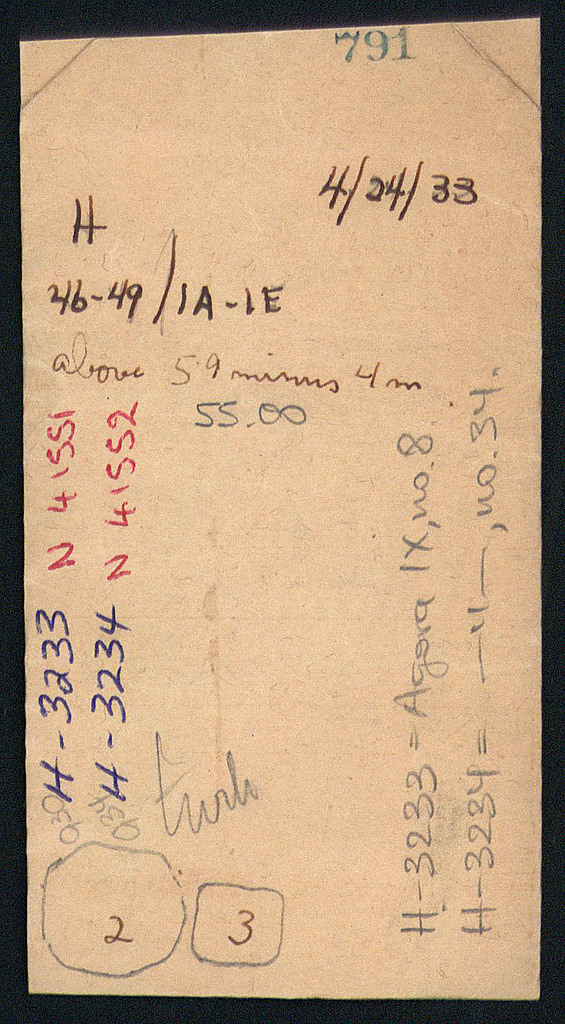 791
4/24/33
H
46-49/1A-1E
above 59 minus 4m
55.00
H-3233 N 41551
H-3234 N 41552
Turk
2
3
H-3233 = Agora IX, no. 8.
H-3234 = —"—, no. 34.